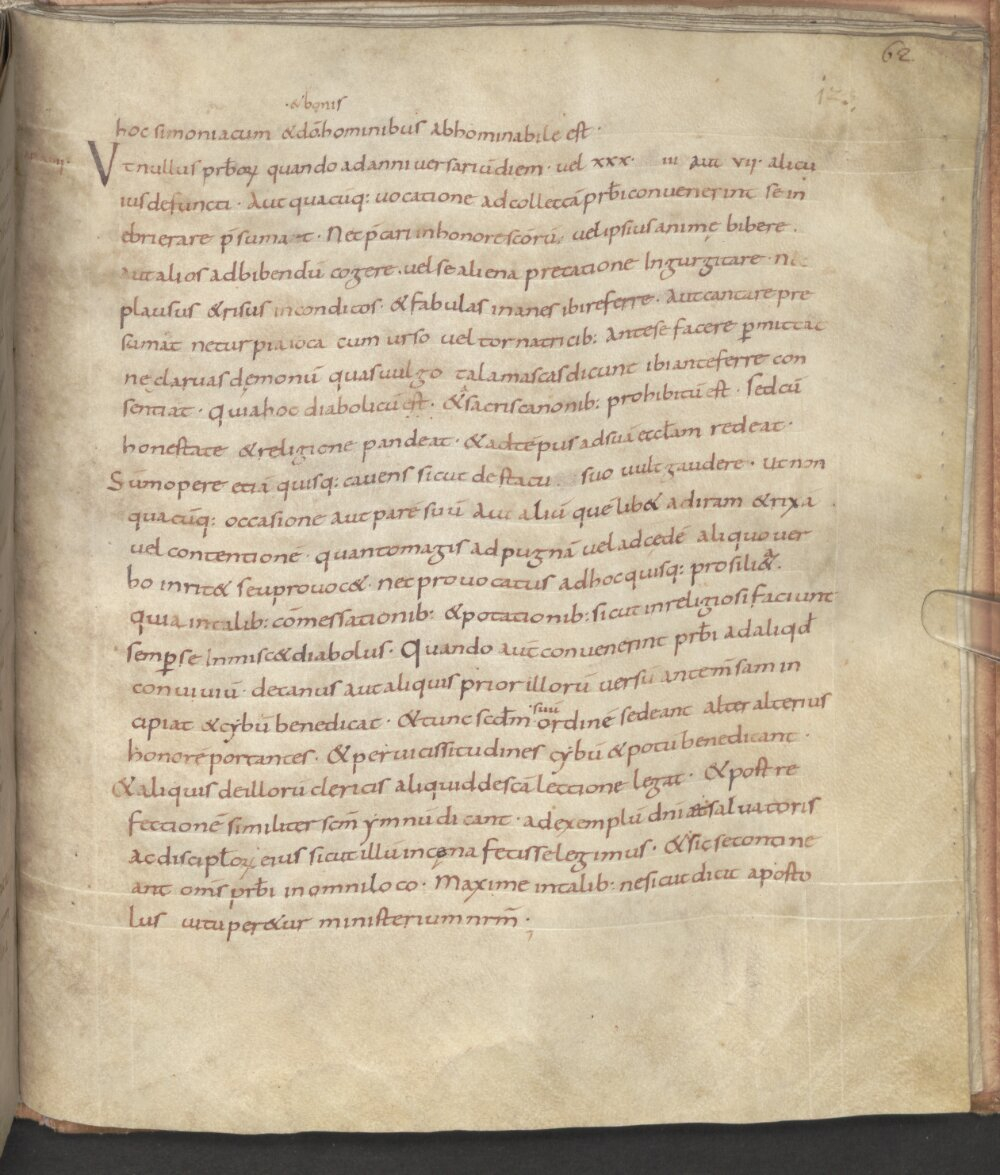 62
123
·&bonis
hoc simoniacum &dō hominibus abhominabile est·
Vt nullus prb̄orꝝ quando ad anniversariū diem· vel xxx· iii aut vii· alicu
ius defuncti· Aut quacūq: vocatione ad collectā prb̄i convenerint se in
ebrierare p̄sumat· Nec p̄cari in honore scōrū vel ipsius animę bibere·
aut alios ad bibendū cogere· vel se aliena precatione Ingurgitare· n
plausus &risus inconditos· &fabulas inanes ibi referre· Aut cantare pre
sumāt nec turpia ioca cum urso vel tornatricib: Ante se facere p̄mittat
nec larvas dęmonū quas vulgo talamascas dicunt ibi anteferre con
sentiat· Quia hoc diabolicū est· &a sacris canonib: prohibitū est· Sed cū
honestate &religione pandeat· &ad tēpus ad suā eccłam redeat·
Sūmopere etiā quisq: cavens sicut de statu suo vult gaudere· Ut non
quacūq: occasione aut parē suū Aut aliū quēlib& ad iram &rixa
vel contentionē· quanto magis ad pugnā vel ad cędē aliquo ver
bo inrit& seu provoc&· nec provocatus ad hoc quisq: prosiliat&·
quia in talib: cōmessationib: &potationib: sicut inreligiosi faciunt
semp̄ se Inmisc& diabolus· Quando aut̄ convenerint prb̄i ad aliqđ
conviviū· decanus aut aliquis prior illorū versū ante m̄sam in
cipiat &cybū benedicat· &tunc scđm suū ordinē sedeant alter alterius
honorē portantes· &per vicissitudines cybū &potū benedicant·
&aliquis de illorū clericis aliquid de scā lectione legat· &post re
fectionē similiter scm̄ ymnū dicant· ad exemplū dn̄i salvatoris
ac discipłorꝝ eius sicut illū in cęna fecisse legimus· &sic se contine
ant om̄s prb̄i in omni loco· Maxime in talib: ne sicut dicit aposto
lus vituper&ur ministerium nrm̄·